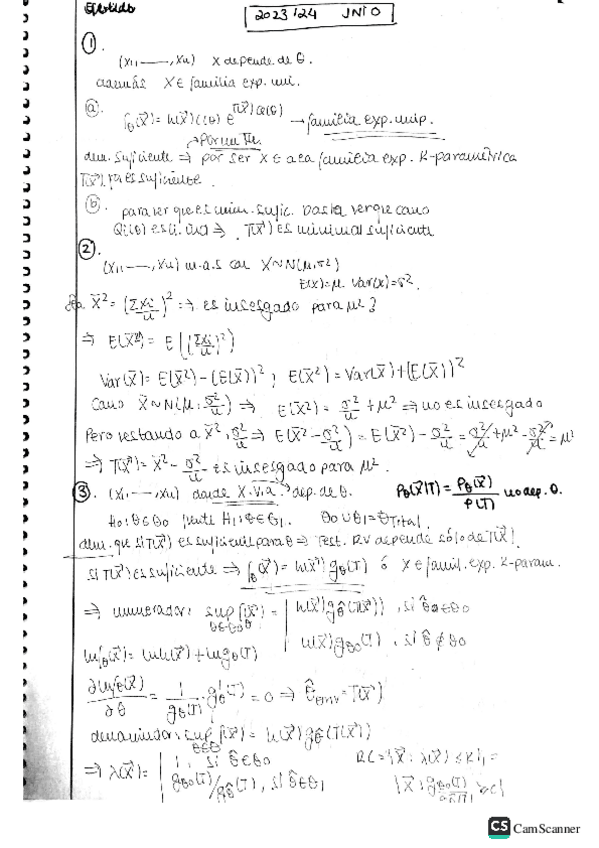 2023/24 JNIO
①.
(x₁, —, xn) x depende de θ.
además X ∈ familia exp. uni.
ⓐ. f_θ(x⃗) = h(x⃗) c(θ) e^{T(x⃗) Q(θ)} → familia exp. unip.
por un Th.
dem. suficiente ⇒ por ser X ∈ a la familia exp. K-paramétrica
T(x⃗) ya es suficiente.
ⓑ. para ver que es mini. sufic. basta ver que como
Q(θ) es ⇒ T(x⃗) es minimal suficiente
②.
(x₁, —, xn) m.a.s con X ~ N(μ, σ²)
E(x) = μ Var(x) = σ².
x̄² = (Σxi/n)² ⇒ es insesgado para μ²?
⇒ E(x̄²) = E((Σxi/n)²)
Var(x̄) = E(x̄²) - (E(x̄))² ; E(x̄²) = Var(x̄) + (E(x̄))²
Como x̄ ~ N(μ, σ²/n) ⇒ E(x̄²) = σ²/n + μ² ⇒ no es insesgado
Pero restando a x̄², σ²/n ⇒ E(x̄² - σ²/n) = E(x̄²) - σ²/n = σ²/n + μ² - σ²/n = μ²
⇒ T(x⃗) = x̄² - σ²/n es insesgado para μ².
③. (x₁, —, xn) donde X v.a → dep. de θ. P_θ(x⃗|T) = P_θ(x⃗)/P(T) no dep. θ.
H₀: θ ∈ θ₀ frente H₁: θ ∈ θ₁. θ₀ ∪ θ₁ = θ_Total.
dem. que si T(x⃗) es suficiente para θ ⇒ Test. RV depende sólo de T(x⃗)
si T(x⃗) es suficiente ⇒ f_θ(x⃗) = h(x⃗) g_θ(T) ó X ∈ famil. exp. K-param.
⇒ numerador: sup f(x⃗) = | h(x⃗) g_θ̂(T(x⃗)), si θ̂ ∈ θ₀
h(x⃗) g_θ₀(T), si θ̂ ∉ θ₀
ln f_θ(x⃗) = ln h(x⃗) + ln g_θ(T)
∂ ln f_θ(x⃗)/∂θ = 1/g_θ(T) · g'_θ(T) = 0 ⇒ θ̂_EMV = T(x⃗)
denominador: sup f(x⃗) = h(x⃗) g_θ̂(T(x⃗))
⇒ λ(x⃗) = | 1, si θ̂ ∈ θ₀ RC = {x⃗ : λ(x⃗) ≤ K} =
g_θ₀(T)/g_θ̂(T), si θ̂ ∈ θ₁
CS CamScanner